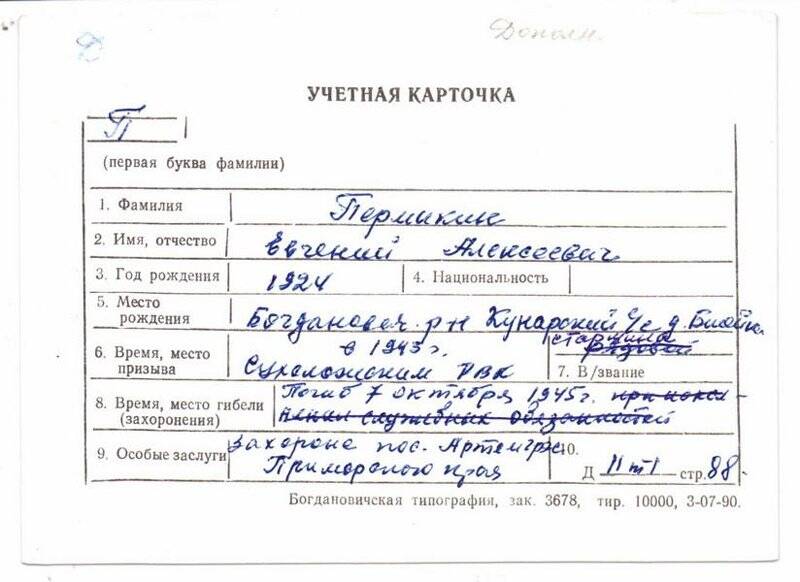 Дополн.
УЧЕТНАЯ КАРТОЧКА
П
(первая буква фамилии)
1. Фамилия Пермикин
2. Имя, отчество Евгений Алексеевич
3. Год рождения 1924 4. Национальность
5. Место рождения Богданович. р-н Кунарский с/с д. Билейка
в 1943 г. старшина
6. Время, место призыва Сухоложским РВК рядовой
7. В/звание
Погиб 7 октября 1945 г. при испол-
8. Время, место гибели (захоронения) нении служебных обязанностей
захоронен пос. Артемгрэс 10.
9. Особые заслуги Приморского края Д II т I стр. 88
Богдановичская типография, зак. 3678, тир. 10000, 3-07-90.